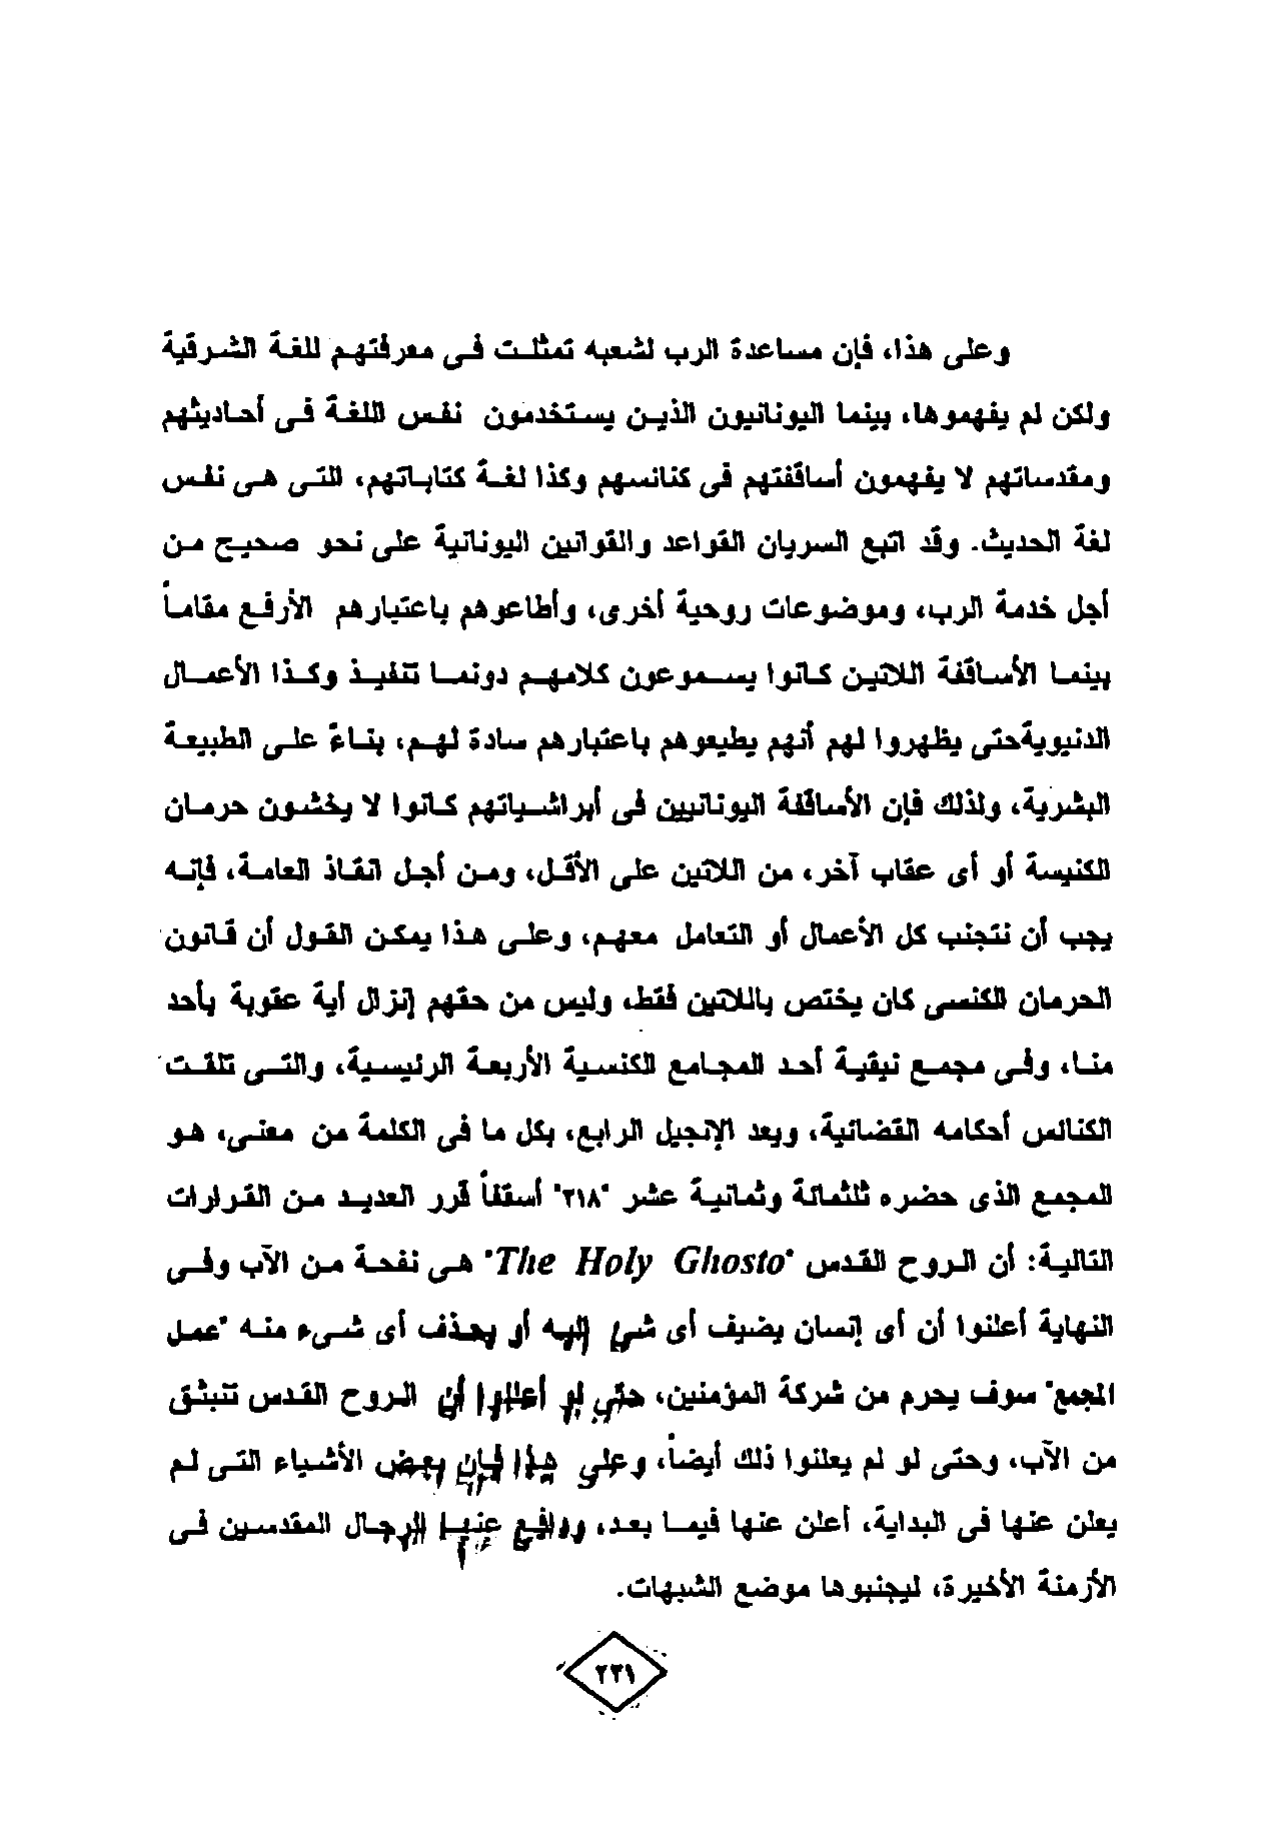 وعلى هذا، فإن مساعدة الرب لشعبه تمثلت فى معرفتهم للغة الشرقية
ولكن لم يفهموها، بينما اليونانيون الذين يستخدمون نفس اللغة فى أحاديثهم
ومقدساتهم لا يفهمون أساقفتهم فى كنائسهم وكذا لغة كتاباتهم، التى هى نفس
لغة الحديث. وقد اتبع السريان القواعد والقوانين اليونانية على نحو صحيح من
أجل خدمة الرب، وموضوعات روحية أخرى، وأطاعوهم باعتبارهم الأرفع مقاماً
بينما الأساقفة اللاتين كانوا يسموعون كلامهم دونما تنفيذ وكذا الأعمال
الدنيويةحتى يظهروا لهم أنهم يطيعوهم باعتبارهم سادة لهم، بناءً على الطبيعة
البشرية، ولذلك فإن الأساقفة اليونانيين فى أبراشياتهم كانوا لا يخشون حرمان
الكنيسة أو أى عقاب آخر، من اللاتين على الأقل، ومن أجل انقاذ العامة، فإنه
يجب أن نتجنب كل الأعمال أو التعامل معهم، وعلى هذا يمكن القول أن قانون
الحرمان الكنسى كان يختص باللاتين فقط، وليس من حقهم إنزال أية عقوبة بأحد
منا، وفى مجمع نيقية أحد المجامع الكنسية الأربعة الرئيسية، والتى تلقت
الكنائس أحكامه القضائية، ويعد الإنجيل الرابع، بكل ما فى الكلمة من معنى، هو
المجمع الذى حضره ثلثمائة وثمانية عشر "٢١٨" أسقفاً قرر العديد من القرارات
التالية: أن الروح القدس "The Holy Ghosto" هى نفحة من الآب وفى
النهاية أعلنوا أن أى إنسان يضيف أى شئ إليه أو يحذف أى شىء منه "عمل
المجمع" سوف يحرم من شركة المؤمنين، حتى لو أعلنوا أن الروح القدس تنبثق
من الآب، وحتى لو لم يعلنوا ذلك أيضاً، وعلى هذا فإن بعض الأشياء التى لم
يعلن عنها فى البداية، أعلن عنها فيما بعد، ودافع عنها الرجال المقدسين فى
الأزمنة الأخيرة، ليجنبوها موضع الشبهات.
٢٢١